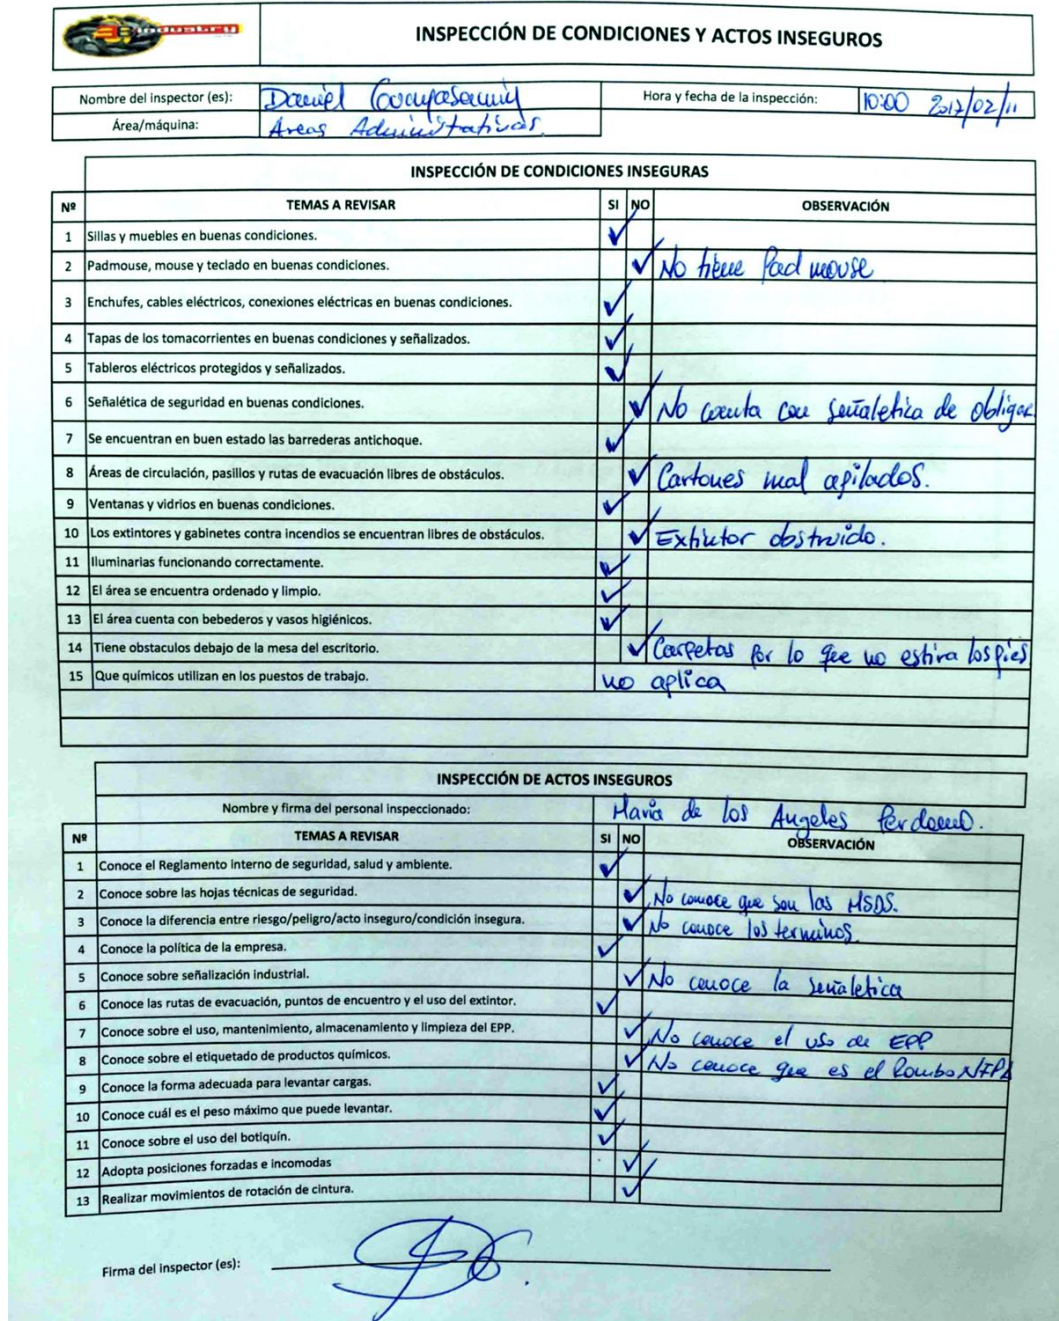 36 industry
INSPECCIÓN DE CONDICIONES Y ACTOS INSEGUROS
Nombre del inspector (es): Daniel Guayasamin Hora y fecha de la inspección: 10:00 2017/02/11
Área/máquina: Areas Administrativas.
INSPECCIÓN DE CONDICIONES INSEGURAS
Nº TEMAS A REVISAR SI NO OBSERVACIÓN
1 Sillas y muebles en buenas condiciones. ✓
2 Padmouse, mouse y teclado en buenas condiciones. ✓ No tiene Pad mouse
3 Enchufes, cables eléctricos, conexiones eléctricas en buenas condiciones. ✓
4 Tapas de los tomacorrientes en buenas condiciones y señalizados. ✓
5 Tableros eléctricos protegidos y señalizados. ✓
6 Señalética de seguridad en buenas condiciones. ✓ No cuenta con señaletica de obligar
7 Se encuentran en buen estado las barrederas antichoque. ✓
8 Áreas de circulación, pasillos y rutas de evacuación libres de obstáculos. ✓ Cartones mal apilados.
9 Ventanas y vidrios en buenas condiciones. ✓
10 Los extintores y gabinetes contra incendios se encuentran libres de obstáculos. ✓ Extintor obstruido.
11 Iluminarias funcionando correctamente. ✓
12 El área se encuentra ordenado y limpio. ✓
13 El área cuenta con bebederos y vasos higiénicos. ✓
14 Tiene obstaculos debajo de la mesa del escritorio. ✓ Carpetas por lo que no estira los pies
15 Que químicos utilizan en los puestos de trabajo. no aplica
INSPECCIÓN DE ACTOS INSEGUROS
Nombre y firma del personal inspeccionado: Maria de los Angeles Perdomo.
Nº TEMAS A REVISAR SI NO OBSERVACIÓN
1 Conoce el Reglamento interno de seguridad, salud y ambiente. ✓
2 Conoce sobre las hojas técnicas de seguridad. ✓ No conoce que son las MSDS.
3 Conoce la diferencia entre riesgo/peligro/acto inseguro/condición insegura. ✓ No conoce los terminos.
4 Conoce la política de la empresa. ✓
5 Conoce sobre señalización industrial. ✓ No conoce la señaletica
6 Conoce las rutas de evacuación, puntos de encuentro y el uso del extintor. ✓
7 Conoce sobre el uso, mantenimiento, almacenamiento y limpieza del EPP. ✓ No conoce el uso de EPP
8 Conoce sobre el etiquetado de productos químicos. ✓ No conoce que es el Rombo NFPA
9 Conoce la forma adecuada para levantar cargas. ✓
10 Conoce cuál es el peso máximo que puede levantar. ✓
11 Conoce sobre el uso del botiquín. ✓
12 Adopta posiciones forzadas e incomodas ✓
13 Realizar movimientos de rotación de cintura. ✓
Firma del inspector (es):